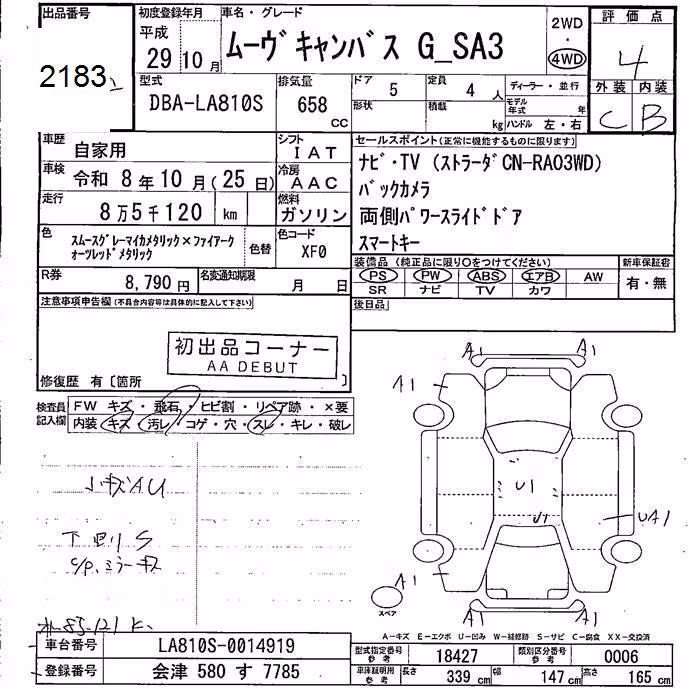 出品番号
2183
初度登録年月
平成
29 10月
車名・グレード
ムーヴキャンバス G_SA3
2WD
・
4WD
評価点
4
外装 内装
C B
型式
DBA-LA810S
排気量
658
CC
ドア 5
形状
定員 4 人
積載 kg
ディーラー・並行
モデル年式 年
ハンドル 左・右
車歴
自家用
シフト
IAT
車検
令和 8年10月(25日)
冷房
AAC
走行
8万5千120 km
燃料
ガソリン
色
スムースグレーマイカメタリック×ファイアーク
ォーツレッドメタリック
色替
色コード
XF0
R券
8,790円
名変通知期限
月 日
セールスポイント(正常に機能するものに限ります)
ナビ・TV (ストラーダCN-RA03WD)
バックカメラ
両側パワースライドドア
スマートキー
装備品 (純正品に限り○をつけてください)
新車保証書
PS PW ABS エアB AW
SR ナビ TV カワ
有・無
後日品
注意事項申告欄(不具合内容等は具体的に記入して下さい)
初出品コーナー
AA DEBUT
修復歴 有〔箇所 〕
検査員
記入欄
FW キズ・飛石・ヒビ割・リペア跡・×要
内装 キズ・汚レ・コゲ・穴・スレ・キレ・破レ
小キズAU
下回りS
C/P、ミラーキズ
A1 A1
A1
U1
U1
UA1
A1
A1 A1
スペア
A-キズ E-エクボ U-凹み W-補修跡 S-サビ C-腐食 XX-交換済
車台番号
LA810S-0014919
登録番号
会津 580 す 7785
型式指定番号
参考
18427
類別区分番号
参考
0006
車庫証明用
参考
長さ 339 cm
幅 147 cm
高さ 165 cm